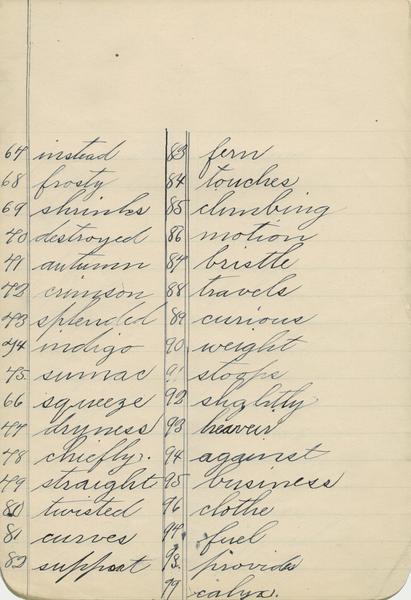 67 instead
68 frosty
69 shrinks
70 destroyed
71 autumn
72 crimson
73 splended
74 indigo
75 sumac
66 squeeze
77 dryness
78 chiefly.
79 straight
80 twisted
81 curves
82 support
83 fern
84 touches
85 climbing
86 motion
87 bristle
88 travels
89 curious
90 weight
91 stoops
92 slightly
93
94 against
95 business
96 clothe
97 fuel
98 provide
99 calyx.